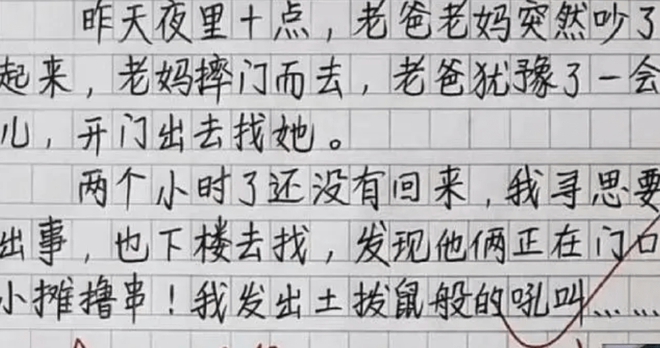 昨天夜里十点，老爸老妈突然吵了
起来，老妈摔门而去，老爸犹豫了一会
儿，开门出去找她。
两个小时了还没有回来，我寻思要
出事，也下楼去找，发现他俩正在门口
小摊撸串！我发出土拨鼠般的吼叫……